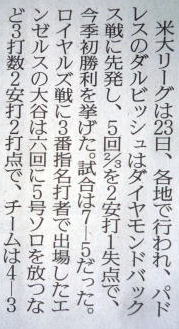 米大リーグは23日、各地で行われ、パド
レスのダルビッシュはダイヤモンドバック
ス戦に先発し、5回⅔を2安打1失点で、
今季初勝利を挙げた。試合は7―5だった。
ロイヤルズ戦に3番指名打者で出場したエ
ンゼルスの大谷は六回に5号ソロを放つな
ど3打数2安打2打点で、チームは4―3